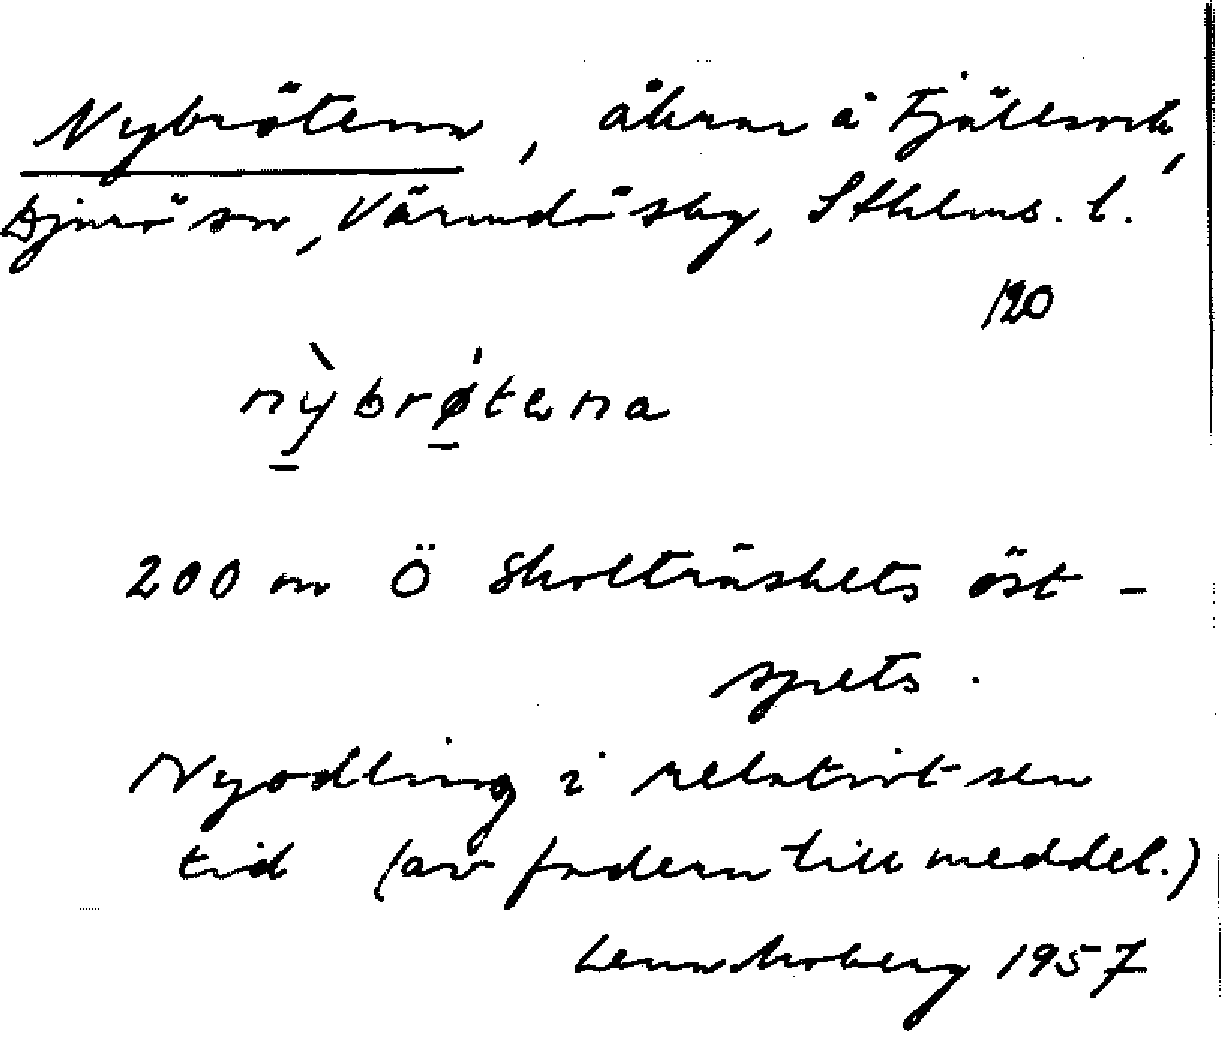 Nybrötena, åkrar å Fjällsvik,
Djurö sn, Värmdö sky, Sthlms. l.
120
nỳbrǿtena
200 m Ö Skolträskets öst-
spets.
Nyodling i relativt sen
tid (av fadern till meddel.)
1957